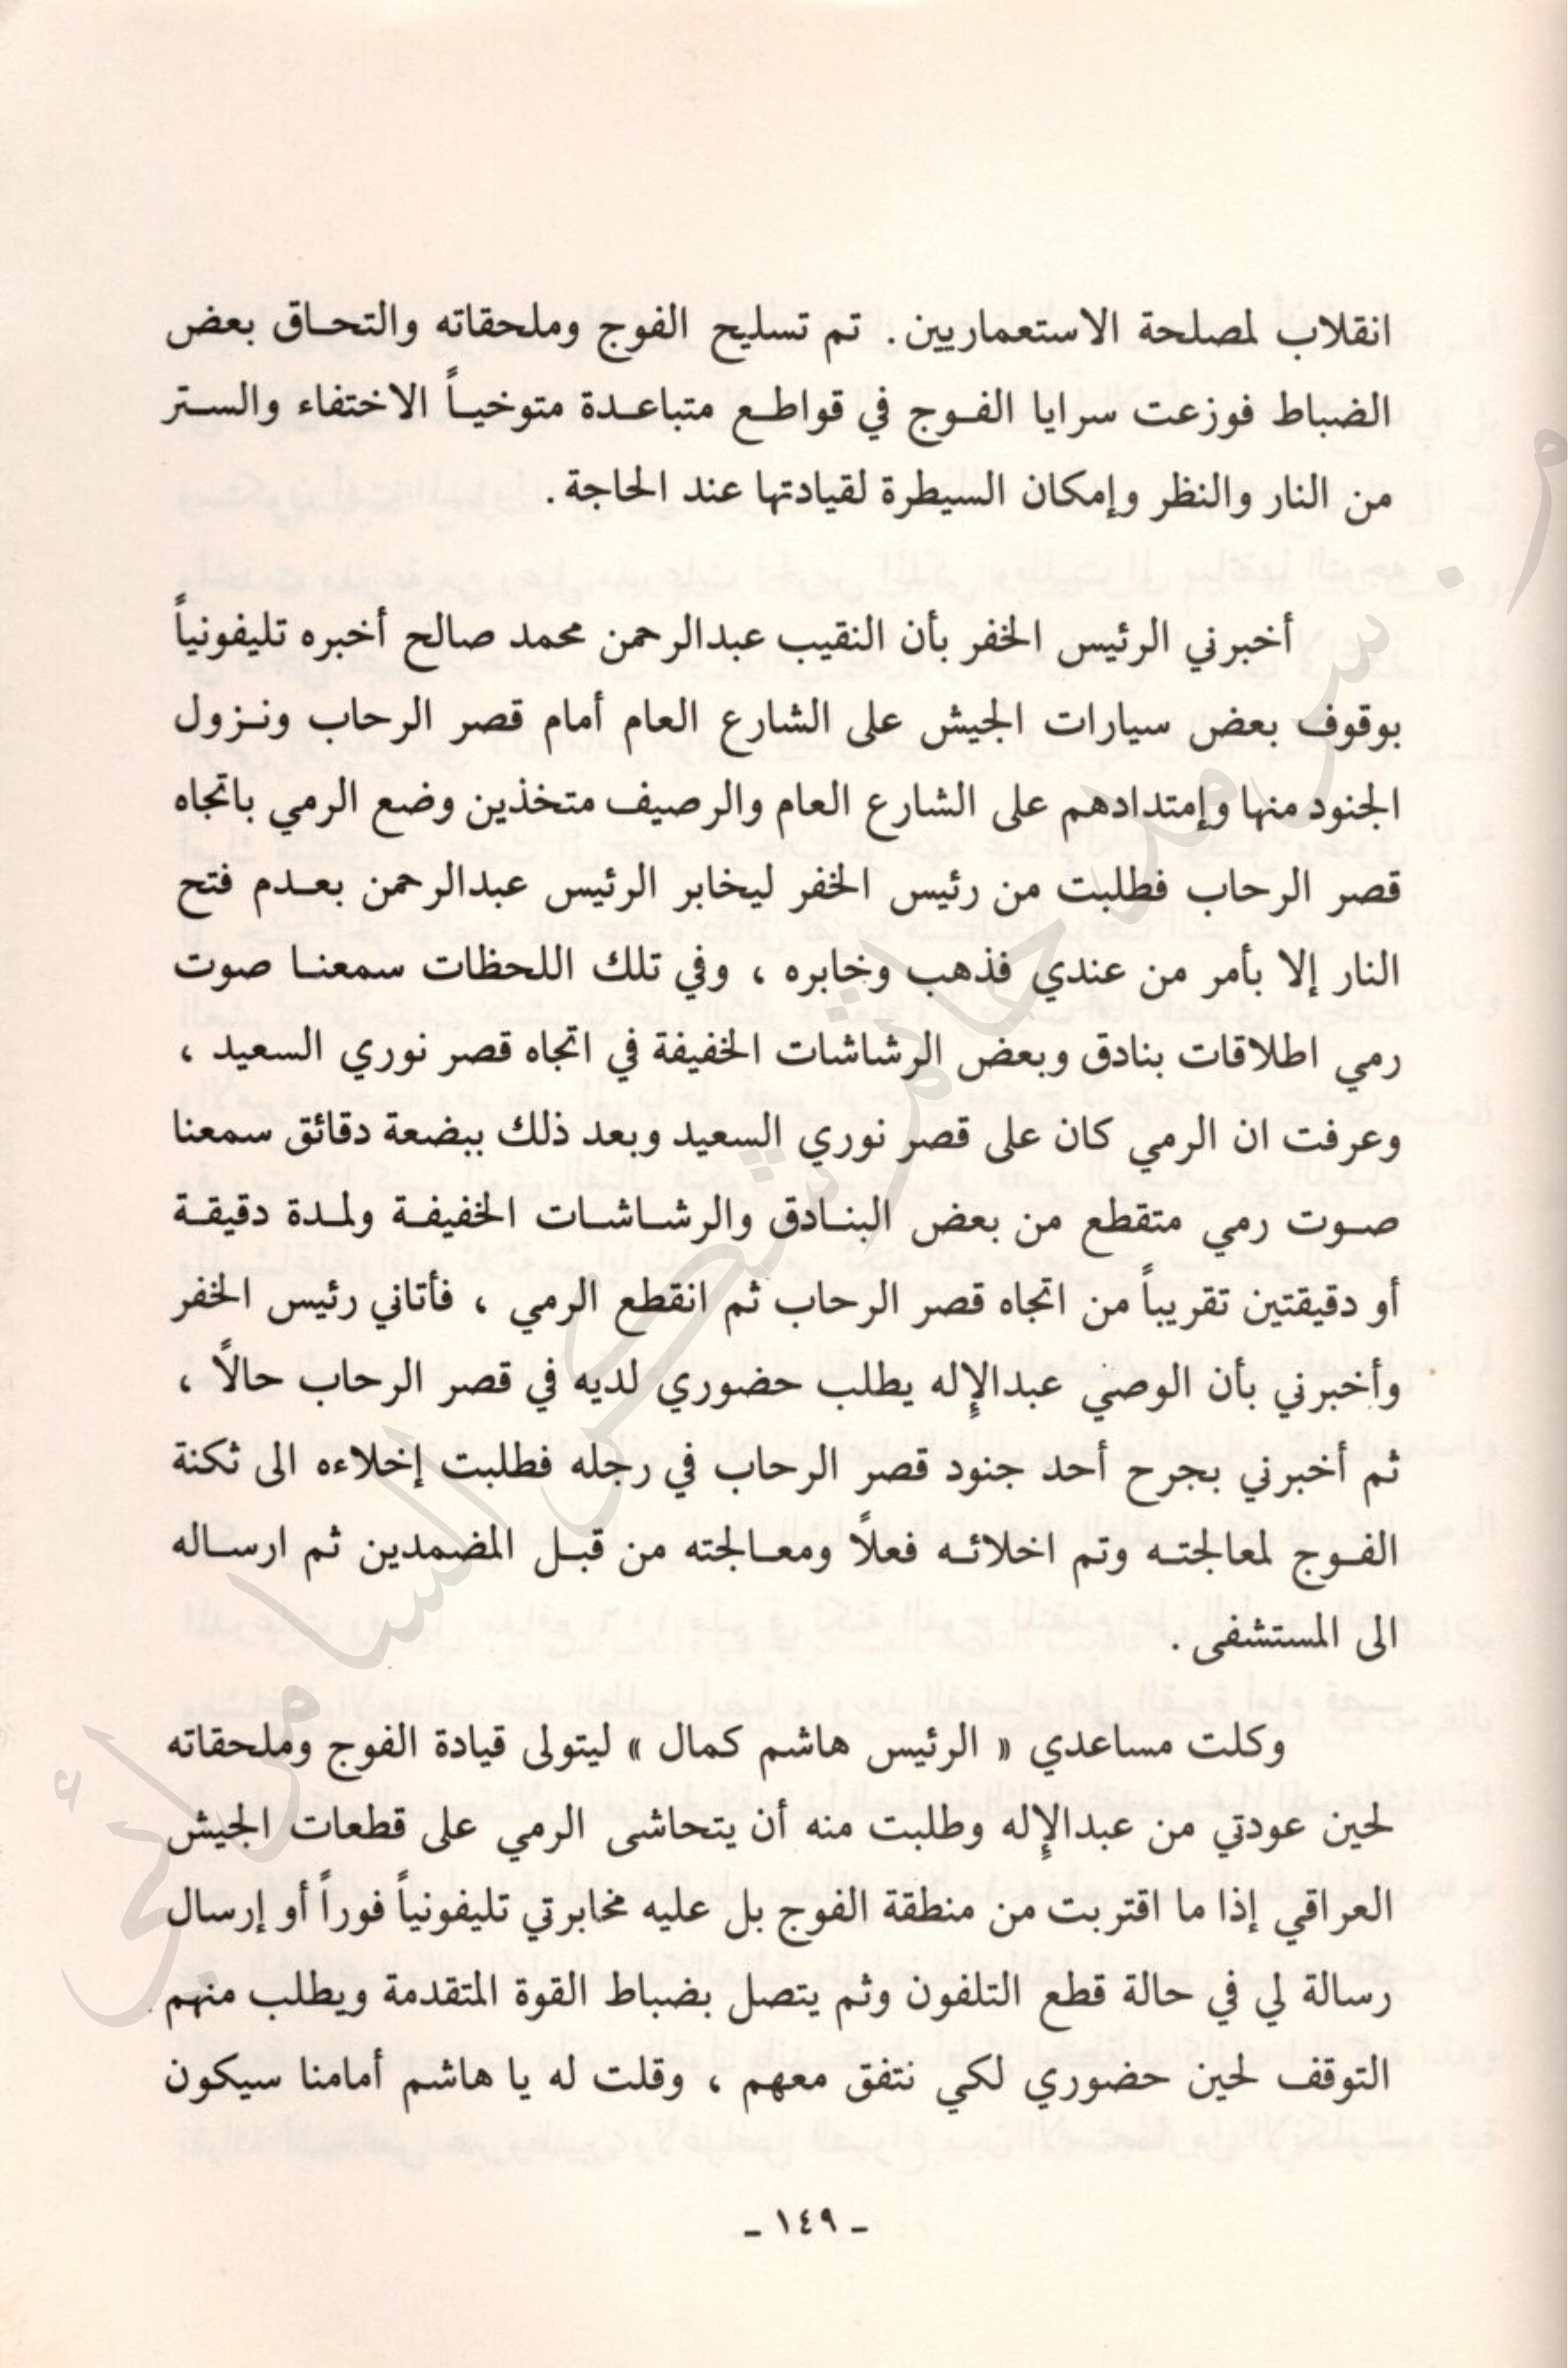 انقلاب لمصلحة الاستعماريين. تم تسليح الفوج وملحقاته والتحاق بعض
الضباط فوزعت سرايا الفوج في قواطع متباعدة متوخياً الاختفاء والستر
من النار والنظر وإمكان السيطرة لقيادتها عند الحاجة.
أخبرني الرئيس الخفر بأن النقيب عبدالرحمن محمد صالح أخبره تليفونياً
بوقوف بعض سيارات الجيش على الشارع العام أمام قصر الرحاب ونزول
الجنود منها وإمتدادهم على الشارع العام والرصيف متخذين وضع الرمي باتجاه
قصر الرحاب فطلبت من رئيس الخفر ليخابر الرئيس عبدالرحمن بعدم فتح
النار إلا بأمر من عندي فذهب وخابره ، وفي تلك اللحظات سمعنا صوت
رمي اطلاقات بنادق وبعض الرشاشات الخفيفة في اتجاه قصر نوري السعيد ،
وعرفت ان الرمي كان على قصر نوري السعيد وبعد ذلك ببضعة دقائق سمعنا
صوت رمي متقطع من بعض البنادق والرشاشات الخفيفة ولمدة دقيقة
أو دقيقتين تقريباً من اتجاه قصر الرحاب ثم انقطع الرمي ، فأتاني رئيس الخفر
وأخبرني بأن الوصي عبدالإله يطلب حضوري لديه في قصر الرحاب حالاً ،
ثم أخبرني بجرح أحد جنود قصر الرحاب في رجله فطلبت إخلاءه الى ثكنة
الفوج لمعالجته وتم اخلائه فعلاً ومعالجته من قبل المضمدين ثم ارساله
الى المستشفى .
وكلت مساعدي « الرئيس هاشم كمال » ليتولى قيادة الفوج وملحقاته
لحين عودتي من عبدالإله وطلبت منه أن يتحاشى الرمي على قطعات الجيش
العراقي إذا ما اقتربت من منطقة الفوج بل عليه مخابرتي تليفونياً فوراً أو إرسال
رسالة لي في حالة قطع التلفون وثم يتصل بضباط القوة المتقدمة ويطلب منهم
التوقف لحين حضوري لكي نتفق معهم ، وقلت له يا هاشم أمامنا سيكون
- ١٤٩ -